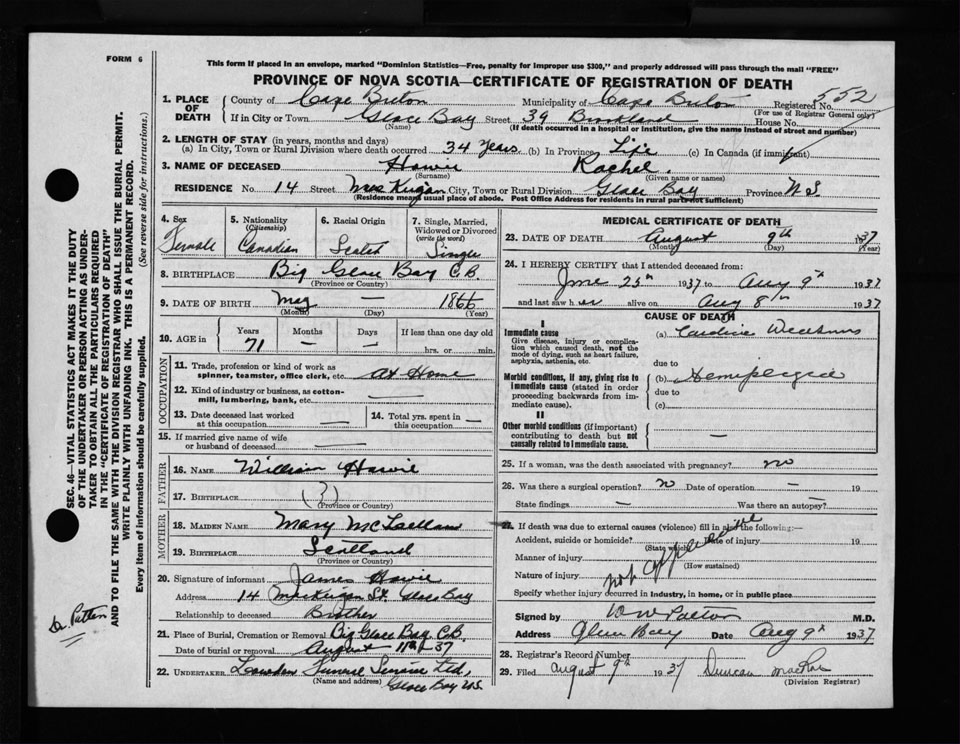 FORM 6
This form if placed in an envelope, marked "Dominion Statistics—Free, penalty for improper use $300," and properly addressed will pass through the mail "FREE"
PROVINCE OF NOVA SCOTIA—CERTIFICATE OF REGISTRATION OF DEATH
1. PLACE OF DEATH County of Cape Breton Municipality of Cape Breton Registered No. 552
(For use of Registrar General only)
If in City or Town Glace Bay Street 39 Brookland House No.
(Name) (If death occurred in a hospital or institution, give the name instead of street and number)
2. LENGTH OF STAY (in years, months and days)
(a) In City, Town or Rural Division where death occurred 34 Years (b) In Province Life (c) In Canada (if immigrant)
3. NAME OF DECEASED Howie Rachel.
(Surname) (Given name or names)
RESIDENCE No. 14 Street City, Town or Rural Division Glace Bay Province N S
(Residence means usual place of abode. Post Office Address for residents in rural parts not sufficient)
4. Sex Female
5. Nationality (Citizenship) Canadian
6. Racial Origin
7. Single, Married, Widowed or Divorced (write the word) Single
8. BIRTHPLACE Big Glace Bay C.B.
(Province or Country)
9. DATE OF BIRTH — 1866
(Month) (Day) (Year)
10. AGE in Years 71 Months — Days — If less than one day old hrs. or min.
OCCUPATION
11. Trade, profession or kind of work as spinner, teamster, office clerk, etc. At Home
12. Kind of industry or business, as cotton-mill, lumbering, bank, etc. —
13. Date deceased last worked at this occupation —
14. Total yrs. spent in this occupation —
15. If married give name of wife or husband of deceased —
FATHER
16. NAME William Howie
17. BIRTHPLACE (?)
(Province or Country)
MOTHER
18. MAIDEN NAME Mary McLellan
19. BIRTHPLACE Scotland
(Province or Country)
20. Signature of informant James Howie
Address 14 St. Glace Bay
Relationship to deceased Brother
21. Place of Burial, Cremation or Removal Big Glace Bay C.B.
Date of burial or removal August 11th 37
22. UNDERTAKER Funeral Service Ltd,
(Name and address) Glace Bay N.S.
MEDICAL CERTIFICATE OF DEATH
23. DATE OF DEATH August 9th 1937
(Month) (Day) (Year)
24. I HEREBY CERTIFY that I attended deceased from:
June 25th 1937 to Aug 9th 1937
and last saw her alive on Aug 8th 1937
CAUSE OF DEATH
I
Immediate cause
Give disease, injury or complication which caused death, not the mode of dying, such as heart failure, asphyxia, asthenia, etc.
(a) Cardiac Weakness
due to
Morbid conditions, if any, giving rise to immediate cause (stated in order proceeding backwards from immediate cause).
(b) Hemiplegia
due to
(c)
II
Other morbid conditions (if important) contributing to death but not causally related to immediate cause. —
25. If a woman, was the death associated with pregnancy? no
26. Was there a surgical operation? no Date of operation — 19
State findings — Was there an autopsy? —
27. If death was due to external causes (violence) fill in also the following:—
Accident, suicide or homicide? Date of injury 19
(State which)
Manner of injury
(How sustained)
Nature of injury
not applicable
Specify whether injury occurred in Industry, in home, or in public place
Signed by W W Patton M.D.
Address Glace Bay Date Aug 9th 1937
28. Registrar's Record Number
29. Filed August 9th 1937 Duncan MacRae
(Division Registrar)
SEC. 46—VITAL STATISTICS ACT MAKES IT THE DUTY OF THE UNDERTAKER OR PERSON ACTING AS UNDERTAKER TO OBTAIN ALL THE PARTICULARS REQUIRED IN THE "CERTIFICATE OF REGISTRATION OF DEATH" AND TO FILE THE SAME WITH THE DIVISION REGISTRAR WHO SHALL ISSUE THE BURIAL PERMIT.
WRITE PLAINLY WITH UNFADING INK. THIS IS A PERMANENT RECORD.
Every item of information should be carefully supplied. (See reverse side for instructions.)
Dr. Patten